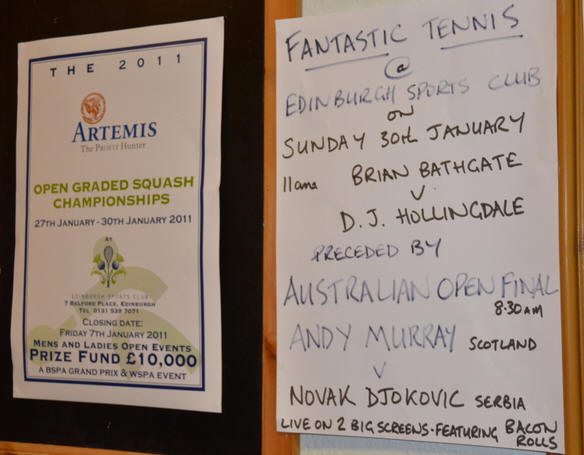 THE 2011
ARTEMIS
The PROFIT Hunter
OPEN GRADED SQUASH
CHAMPIONSHIPS
27TH JANUARY - 30TH JANUARY 2011
At
EDINBURGH SPORTS CLUB
7 BELFORD PLACE, EDINBURGH
TEL 0131 539 7071
CLOSING DATE:
FRIDAY 7TH JANUARY 2011
MENS AND LADIES OPEN EVENTS
PRIZE FUND £10,000
A BSPA GRAND PRIX & WSPA EVENT
FANTASTIC TENNIS
@
EDINBURGH SPORTS CLUB
ON
SUNDAY 30th JANUARY
11am BRIAN BATHGATE
V
D.J. HOLLINGDALE
PRECEDED BY
AUSTRALIAN OPEN FINAL
8.30am
ANDY MURRAY SCOTLAND
V
NOVAK DJOKOVIC SERBIA
LIVE ON 2 BIG SCREENS · FEATURING BACON
ROLLS